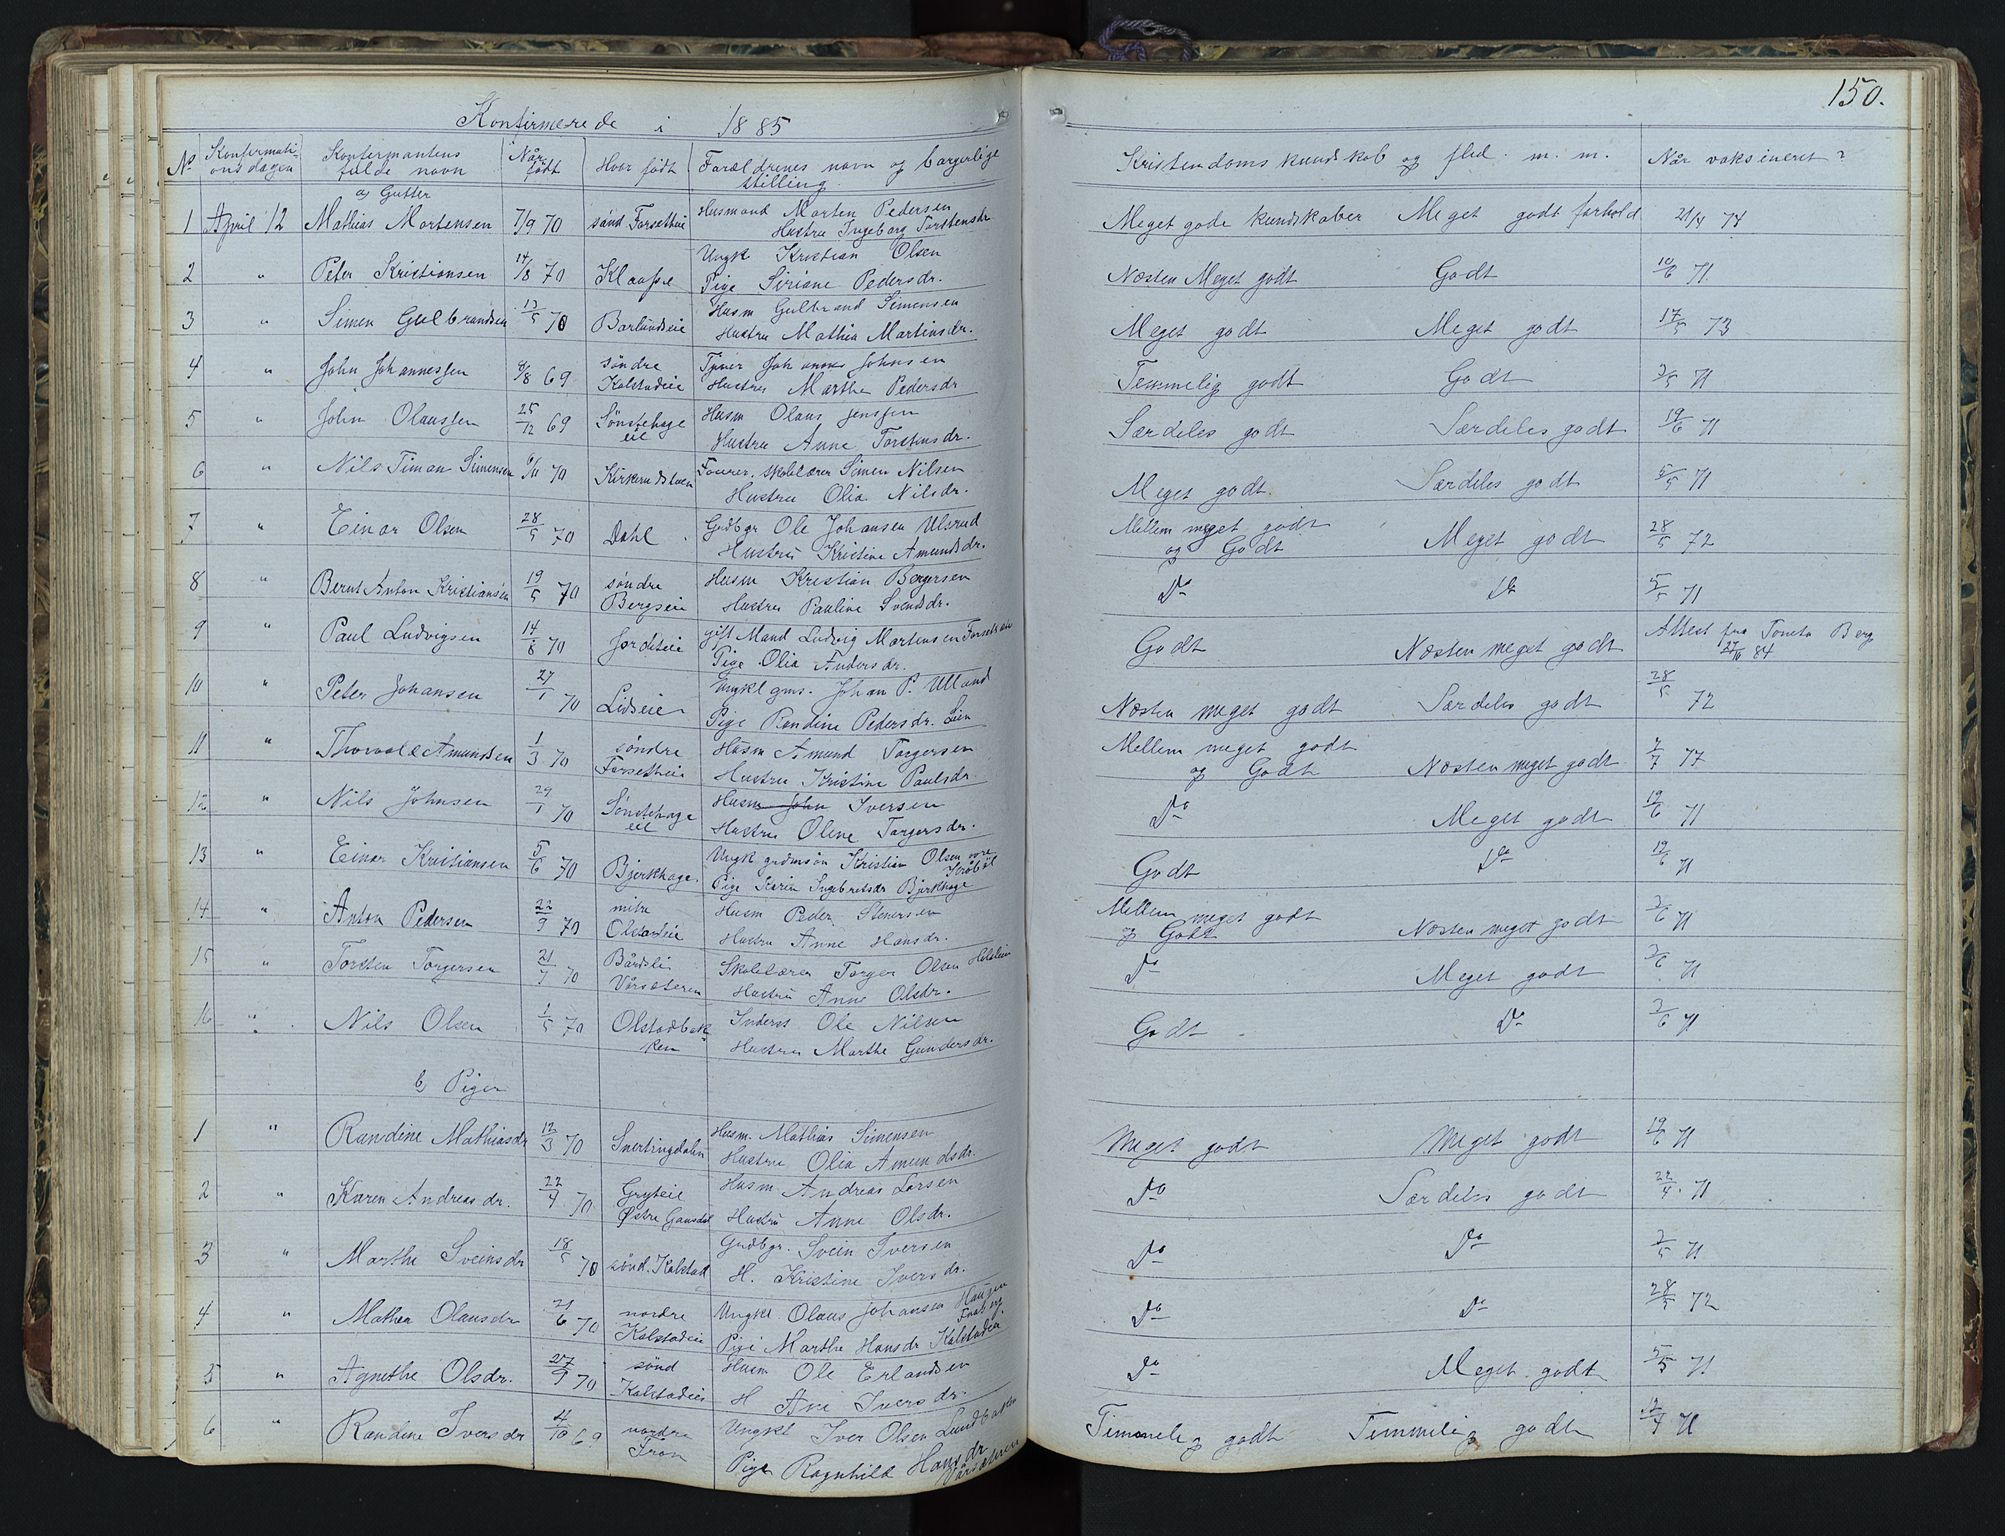 Konfirmerede i 1885
150.
No Konfirmationsdagen Konfirmantens fulde navn Når født Hvor født Forældrenes navn og borgerlige stilling Kristendomskundskab og flid. m. m. Når vaksineret?
a) Gutter
1 April 12 Mathias Mortensen 7/9 70 sönd Forsetheie Husmand Morten Pedersen
Hustru Ingeborg Torstensdr Meget gode kundskaber Meget godt forhold 21/4 74
2 " Peter Kristiansen 14/8 70 Klaapse Ungk Kristian Olsen
Pige Siriane Pedersdr. Næsten Meget godt Godt 10/6 71
3 " Simen Gulbrandsen 13/5 70 Barlundseie Husm Gulbrand Simensen
Hustru Mathia Martinsdr. Meget godt Meget godt 17/5 73
4 " John Johannessen 8/8 69 söndre Kalstadeie Johannes Johnsen
Hustru Marthe Pedersdr Temmelig godt Godt 3/5 71
5 " John Olaussen 25/12 69 Sønstehageeie Husm Olaus Jenssen
Hustru Anne Torstensdr. Særdeles godt Særdeles godt 19/6 71
6 " Nils Timan Simensen 6/11 70 Kirkerudstuen Fourer, skolelærer Simen Nilsen
Hustru Olia Nilsdr. Meget godt. Særdeles godt 5/5 71
7 " Einar Olsen 28/5 70 Dahl Gudbgr Ole Johansen Ulsrud
Hustru Kristine Amundsdr. Mellem meget godt og Godt Meget godt 28/5 72
8 " Bernt Anton Kristiansen 19/5 70 søndre Bergseie Husm Kristian Bergersen
Hustru Pauline Svendsdr. Do Do 5/5 71
9 " Paul Ludvigsen 14/8 70 Jordeteie gift Mand Ludvig Martinsen Forsetheie
Pige Olia Andersdr. Godt Næsten meget godt Attest fra Toneta Berg 27/10 84
10 " Peter Johansen 27/1 70 Lidseie Ungkl gms. Johan P. Ulland
Pige Randine Pedersdr. Lien Næsten meget godt Særdeles godt 28/5 72
11 " Thorvald Amundsen 1/3 70 søndre Forsetheie Husm Amund Torgersen
Hustru Kristine Paulsdr Mellem meget godt og Godt Næsten meget godt 7/7 77
12 " Nils Johnsen 29/1 70 Sønstehageeie Husm John Iversen
Hustru Oline Torgersdr. Do Meget godt 19/6 71
13 " Einar Kristiansen 5/6 70 Bjerkhage. Ungk gudmsøn Kristian Olsen
Pige Karin Ingebretsdr Bjerkhage Godt Do 19/6 71
14 " Anton Pedersen 22/9 70 mitre Olstadeie Husm Peder Stenersen
Hustru Anne Hansdr. Mellem meget godt og Godt Næsten meget godt 3/6 71
15 " Torsten Torgersen 21/7 70 Bårdsli Vårsæteren Skolelærer Torger Olsen Holslien
Hustru Anne Olsdr. Do Meget godt 3/6 71
16 " Nils Olsen 1/5 70 Olstadbakken Inderst Ole Nilsen
Hustru Marthe Gundersdr. Godt Do 3/6 71
b) Piger
1 " Randine Mathiasdr 12/3 70 Snertingdalen Husm. Mathias Simensen
Hustru Olia Amundsdr. Meget godt Meget godt 19/6 71
2 " Karen Andreasdr. 22/4 70 Gryteie Østre Gausdal Husm. Andreas Larsen
Hustru Anne Olsdr. Do Særdeles godt 22/4. 71
3 " Marthe Sveinsdr 18/5 70 sönd. Kalstad Gudbgr. Svein Iversen
H. Kristine Iversdr. Do Do 3/5 71
4 " Mathea Olausdr 21/6 70 nordre Kalstadeie Ungkl Olaus Johansen Haugen
Pige Marthe Hansdr Kalstadeie Do Do 28/5 72
5 " Agnethe Olsdr. 27/9 70 sönd Kalstadeie Husm Ole Erlandsen
H Ane Iversdr. Do Meget godt 5/5 71
6 " Randine Iversdr 4/10 69 nordre Iron Ungkl Iver Olsen Lundbakken
Pige Ragnhild Hansdr Vårsæteren Temmelig godt Temmelig godt 12/4 71